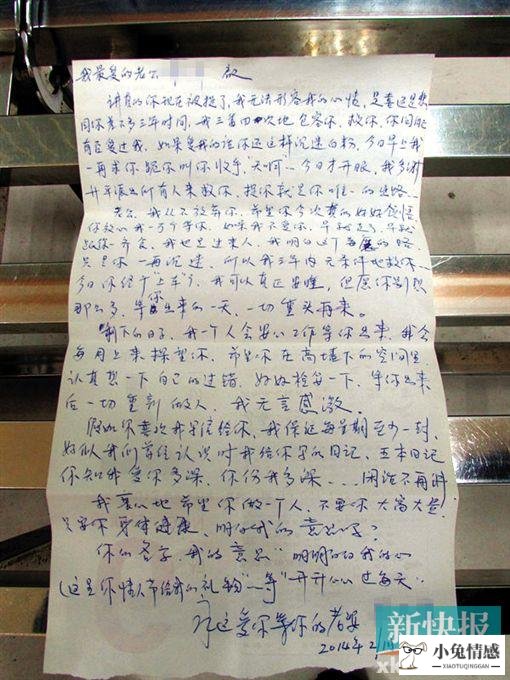 我最爱的老公 启
讲真的你现在被捉了,我无法形容我的心情,是喜还是悲
同你差不多三年时间,我三番四次地包容你、救你,你问我
有否爱过我,如果是我的话你还这样沉迷白粉,今日早上我
一再求你跪你叫你收手,"天啊"…今日才开眼,我多谢
所有人来救你,捉你就是你唯一的出路…
老公,我从不放弃你,希望你今次真的好好饱悟
你放心我一百个等你,如果我不爱你,早就走了,早就
我也是过来人,我明白这个毒的路
只是你一再沉迷,所以我三年内无条件地救你…
今日你终于"上车"了,我可以真正安睡,但愿你别想
那么多,等你出来的一天,一切重头再来。
剩下的日子,我一个人会安心工作等你出来,我会
每月上来探望你,希望你在高墙下的空间里
认真想一下自己的过错,好好检每一下,等你出来
后一切重新做人,我无言感激。
假如你喜欢我写信给你,我保证每星期至少一封,
好似我们首往认识时我给你写的日记,五本日记
你知我爱你多深,你伤我多深……闲话不再讲
我衷心地希望你做一个人,不要你大富大贵,
只要你身体健康,明白我的意思吗?
你的名字,我的意思"明明白白我的心
(这是你情人节给我的礼物"…等"开开心心过每天…
永远爱你等你的老婆
2014年2
新快报
小兔情感
XIAOTUQINGGAN